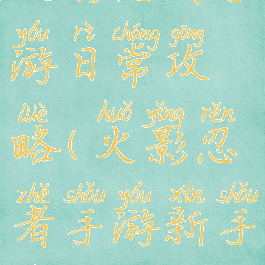 yóu rì cháng gōng
游日常攻
lüè huǒ yǐng rěn
略(火影忍
zhě shǒu yóu xīn shǒu
者手游新手